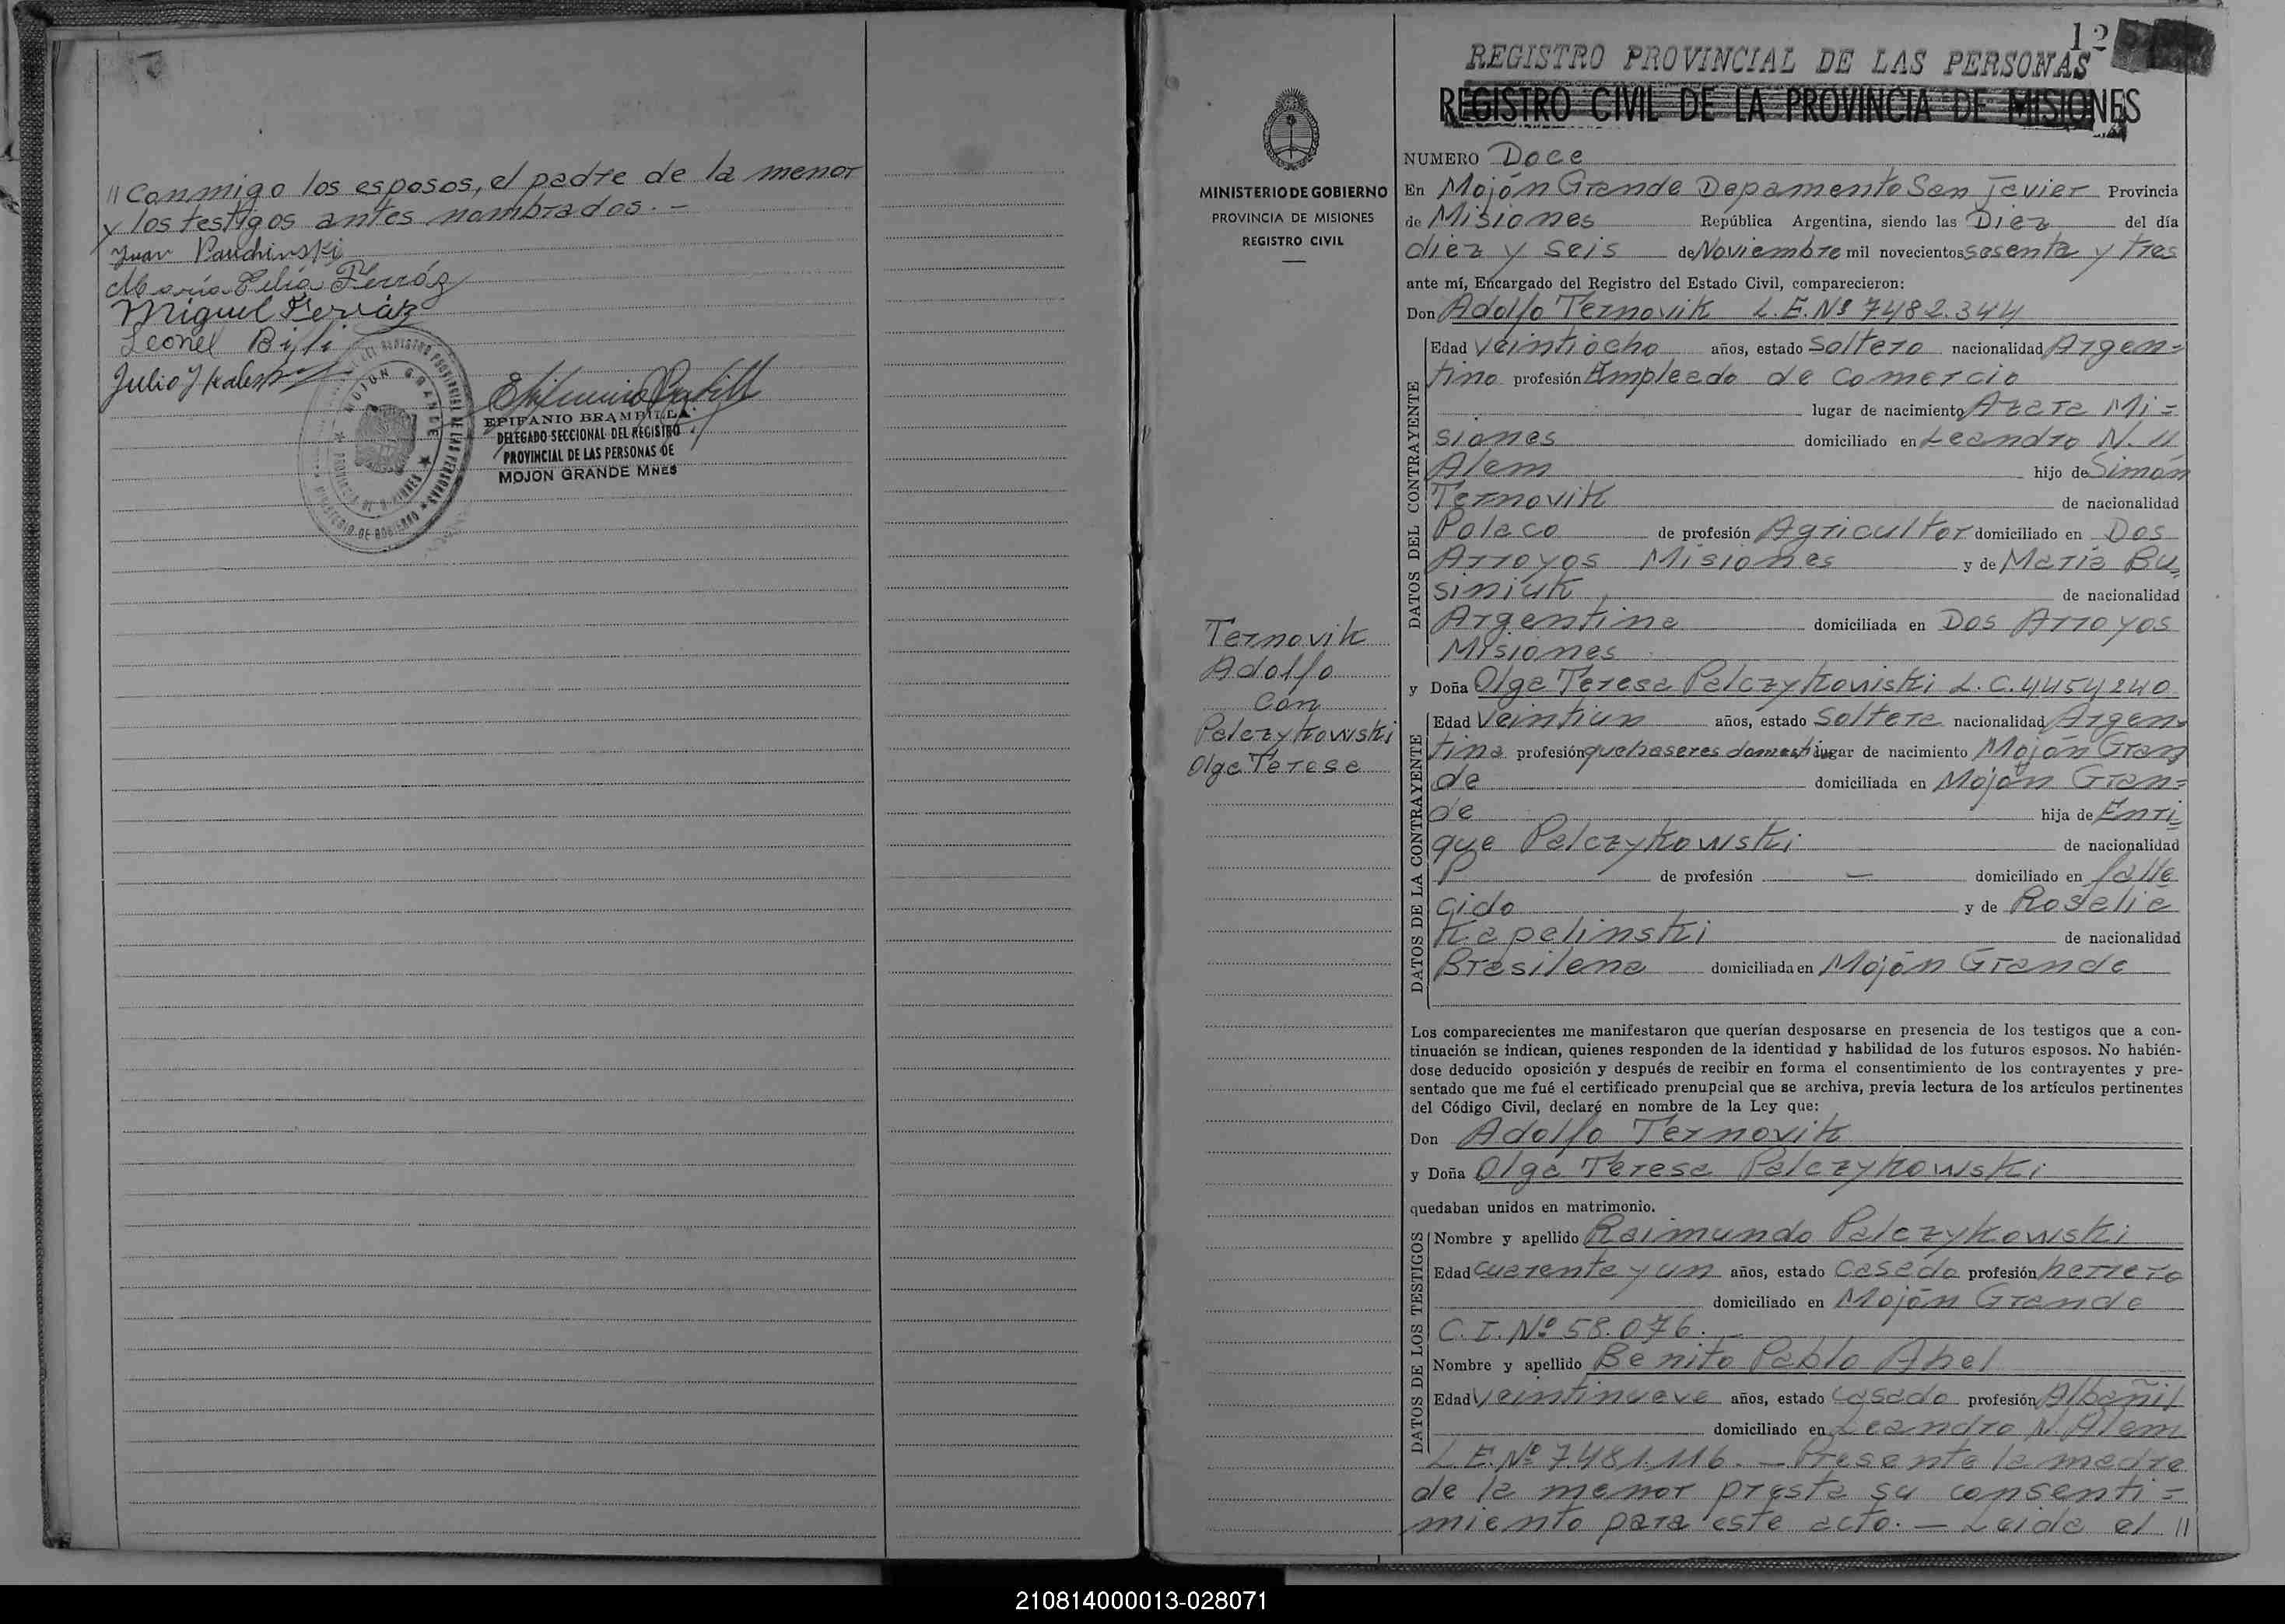 // Conmigo los esposos, el padre de la menor
y los testigos antes nombrados. -
Juan
María Ferráz
Miguel Ferráz
Leonel
Julio
MOJON GRANDE
MINISTERIO DE GOBIERNO
EPIFANIO BRAMBILLA
DELEGADO SECCIONAL DEL REGISTRO
PROVINCIAL DE LAS PERSONAS DE
MOJON GRANDE MNES
12
REGISTRO PROVINCIAL DE LAS PERSONAS
REGISTRO CIVIL DE LA PROVINCIA DE MISIONES
MINISTERIO DE GOBIERNO
PROVINCIA DE MISIONES
REGISTRO CIVIL
Ternovik
Adolfo
Con
Palczykowski
Olga Teresa
NUMERO Doce
En Mojón Grande Depamento San Javier Provincia
de Misiones República Argentina, siendo las Diez del día
diez y seis de Noviembre mil novecientos sesenta y tres
ante mí, Encargado del Registro del Estado Civil, comparecieron:
Don Adolfo Ternovik L.E. Nº 7482.344
DATOS DEL CONTRAYENTE
Edad veintiocho años, estado soltero nacionalidad Argen=
tino profesión Empleado de Comercio
lugar de nacimiento Azara Mi=
siones domiciliado en Leandro N. //
Alem hijo de Simón
Ternovik de nacionalidad
Polaco de profesión Agricultor domiciliado en Dos
Arroyos Misiones y de María Bu=
siniuk de nacionalidad
Argentina domiciliada en Dos Arroyos
Misiones
y Doña Olga Teresa Palczykowiski L.C. 4454240
DATOS DE LA CONTRAYENTE
Edad Veintiun años, estado Soltera nacionalidad Argen=
tina profesión quehaseres domesti lugar de nacimiento Mojón Gran
de domiciliada en Mojón Gran=
de hija de Enri=
que Palczykowski de nacionalidad
P de profesión — domiciliado en falle
cido y de Roselia
Kapelinski de nacionalidad
Brasilena domiciliada en Mojón Grande
Los comparecientes me manifestaron que querían desposarse en presencia de los testigos que a con-
tinuación se indican, quienes responden de la identidad y habilidad de los futuros esposos. No habién-
dose deducido oposición y después de recibir en forma el consentimiento de los contrayentes y pre-
sentado que me fué el certificado prenupcial que se archiva, previa lectura de los artículos pertinentes
del Código Civil, declaré en nombre de la Ley que:
Don Adolfo Ternovik
y Doña Olga Teresa Palczykowski
quedaban unidos en matrimonio.
DATOS DE LOS TESTIGOS
Nombre y apellido Raimundo Palczykowski
Edad cuarenta y un años, estado casado profesión herrero
domiciliado en Mojón Grande
C.I. Nº 58.076. —
Nombre y apellido Benito Pablo Abel
Edad veintinueve años, estado casado profesión Albañil
domiciliado en Leandro N. Alem
L.E. Nº 7481.116. — Presente la madre
de la menor presta su consenti=
miento para este acto. — Leida el //
210814000013-028071